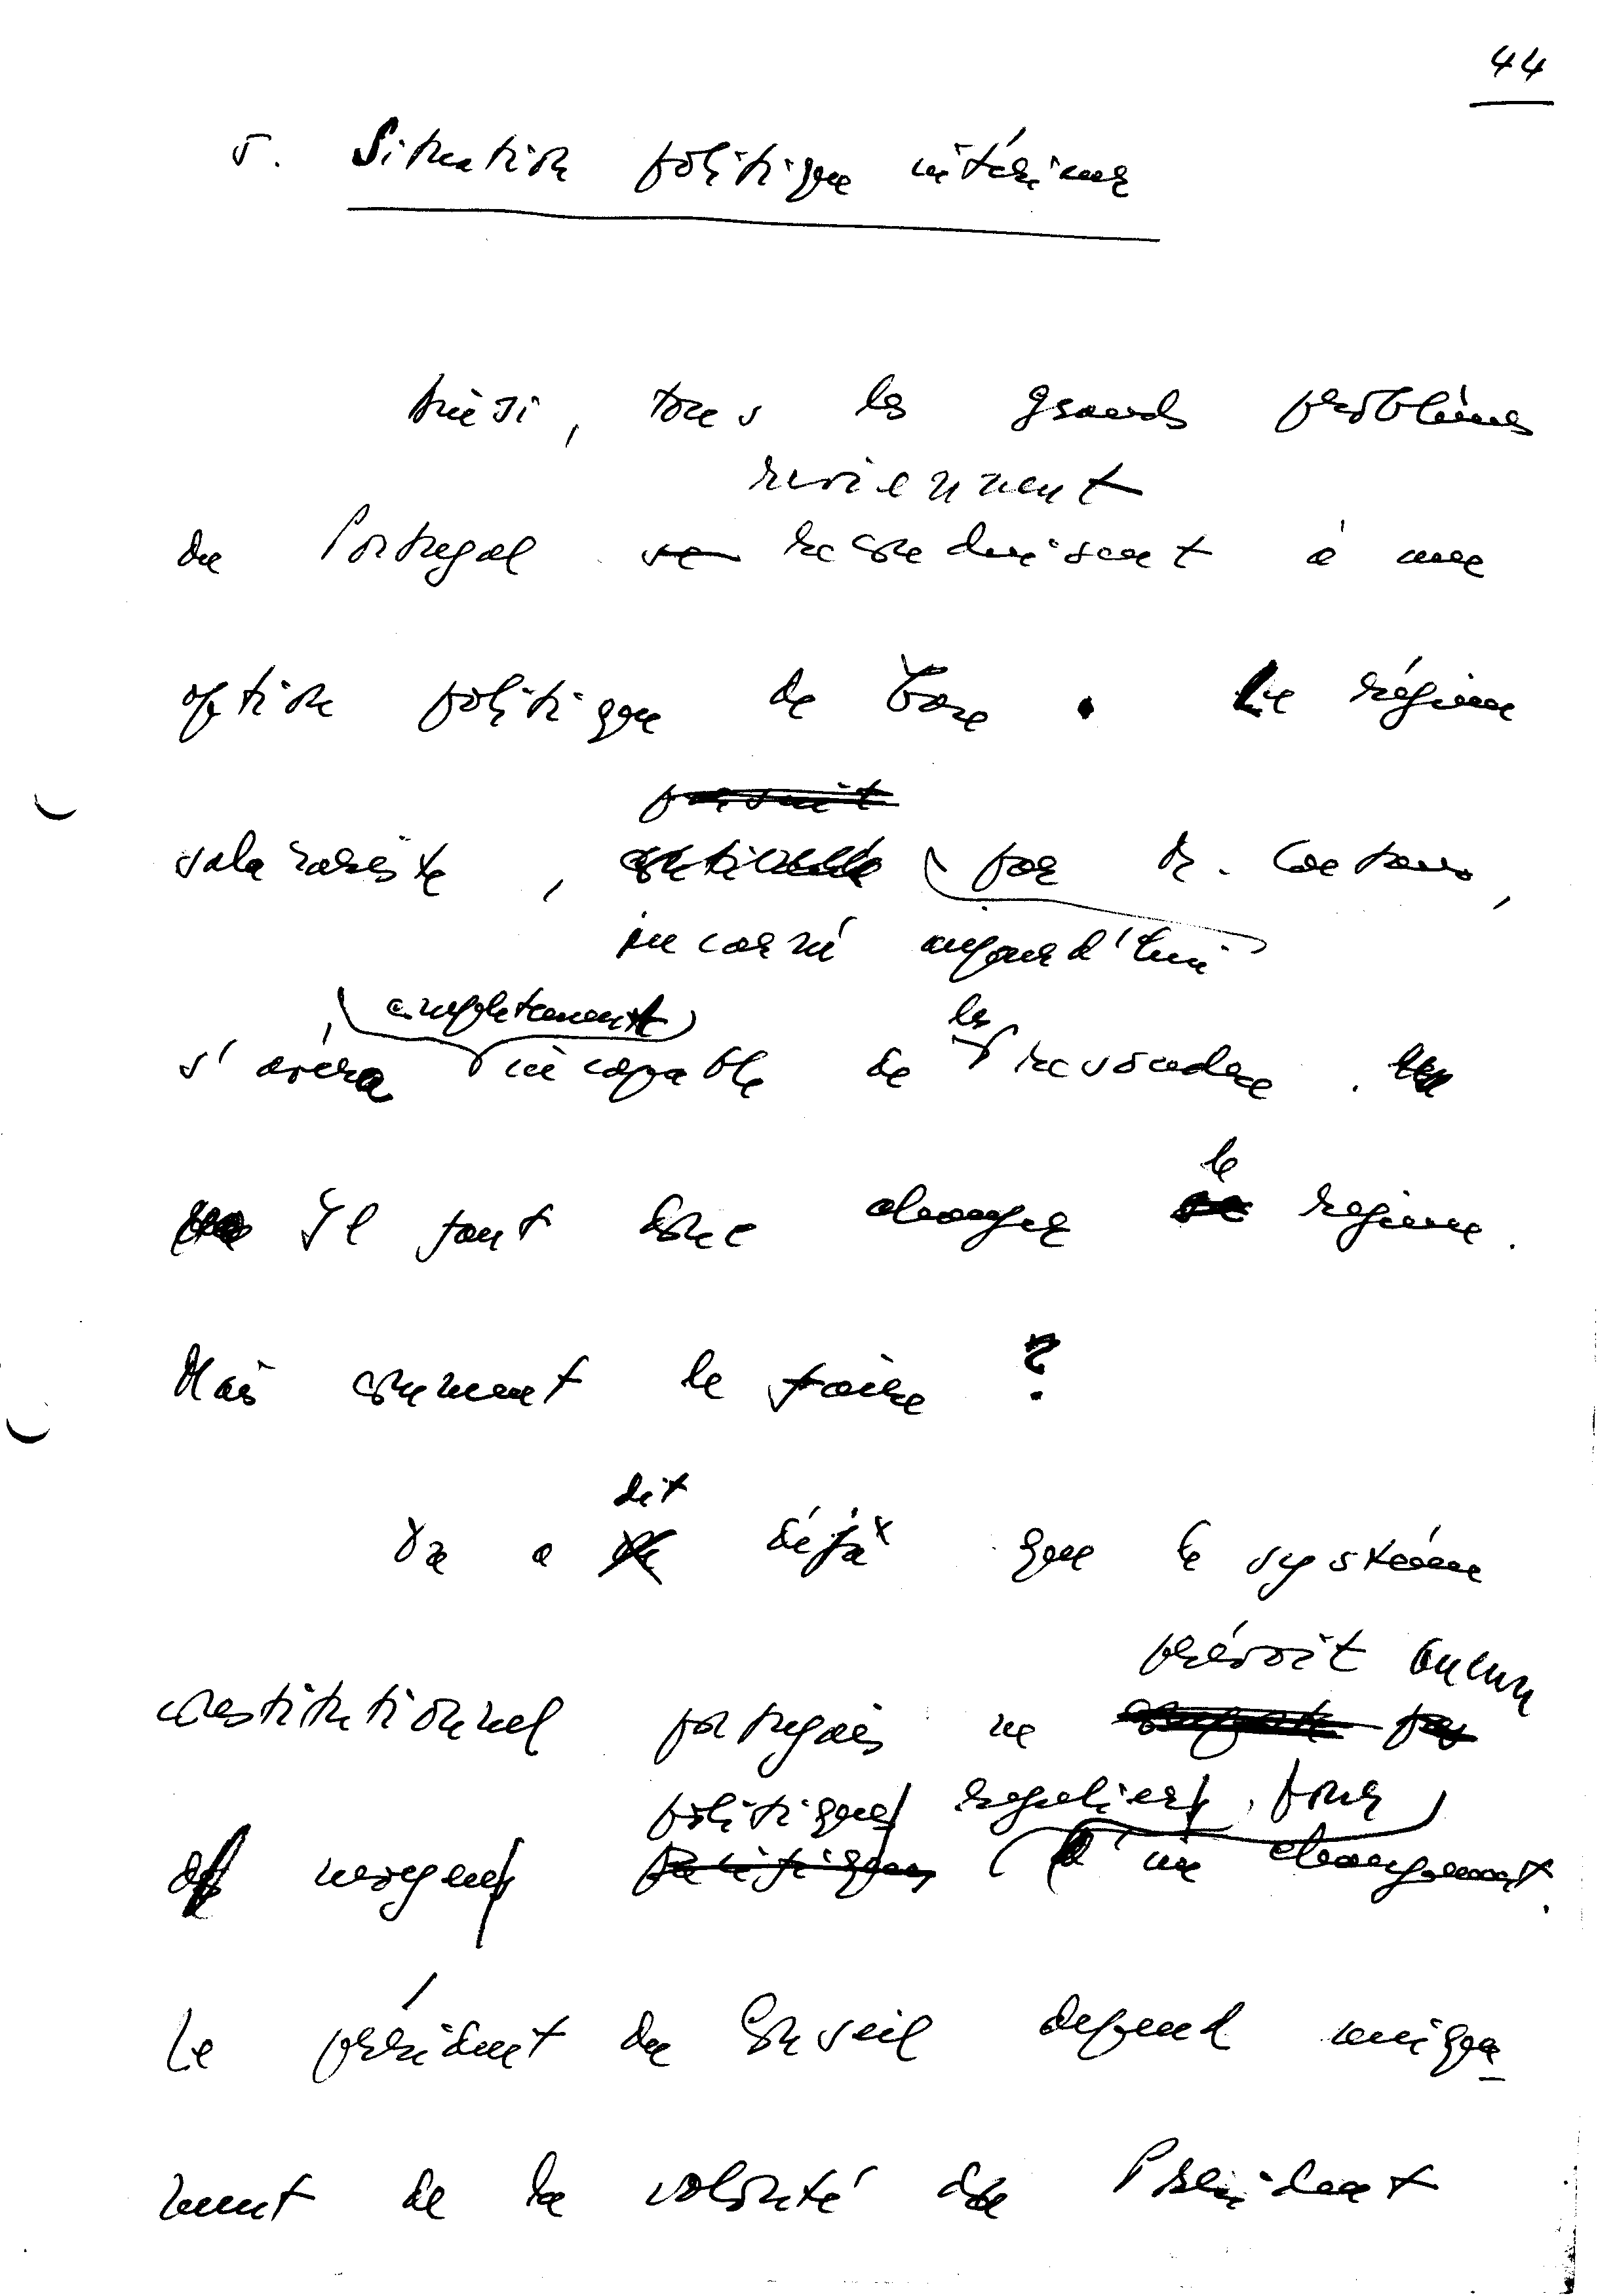 44
5. Situation politique intérieure
Ainsi, tous les grands problèmes
reviennent
du Portugal se reconduisent à une
option politique de base. Le régime
salazariste, par Dr. Caetano,
incarné aujourd'hui
complètement les
s'avéra incapable de résoudre.
le
Il faut donc changer régime.
Mais comment le faire?
dit
On a déjà que le système
prévoit aucun
constitutionnel portugais ne pas
politique régulier, pour
moyen politiques d'un changement.
Le président du Conseil dépend unique
ment de la volonté du Président